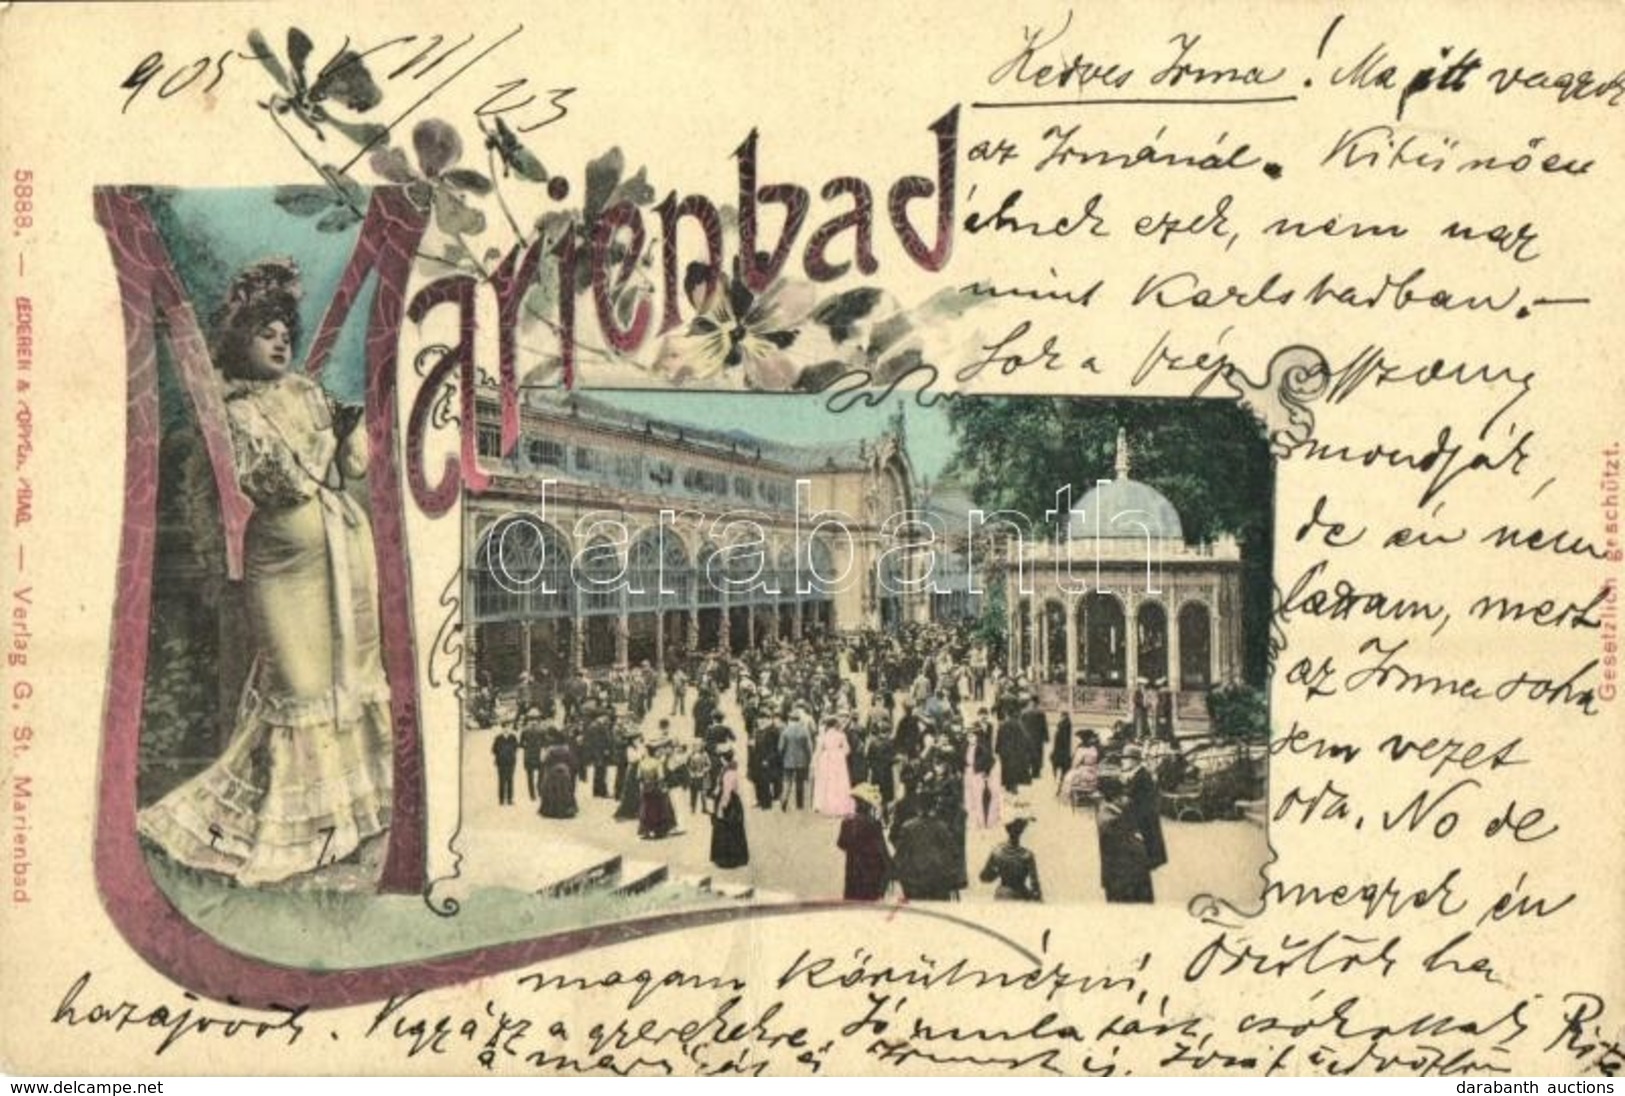 905 VII/23
Marienbad
Kedves Irma! Ma itt vagyok
az Irmánál. Kitünően
élnek ezek, nem ugy
mint Karlsbadban.—
Sok a szép asszony
mondják,
de én nem
látam, mert
az Irma soha
sem vezet
oda. No de
megyek én
magam körülnézni, Örülök ha
hazajövök. Vigyázz a gyerekekre, Jó mulatást, csókollak
5888. — LEDERER & POPPER, PRAG. — Verlag G. St. Marienbad.
Gesetzlich geschützt.
darabanth
© www.delcampe.net
darabanth auctions